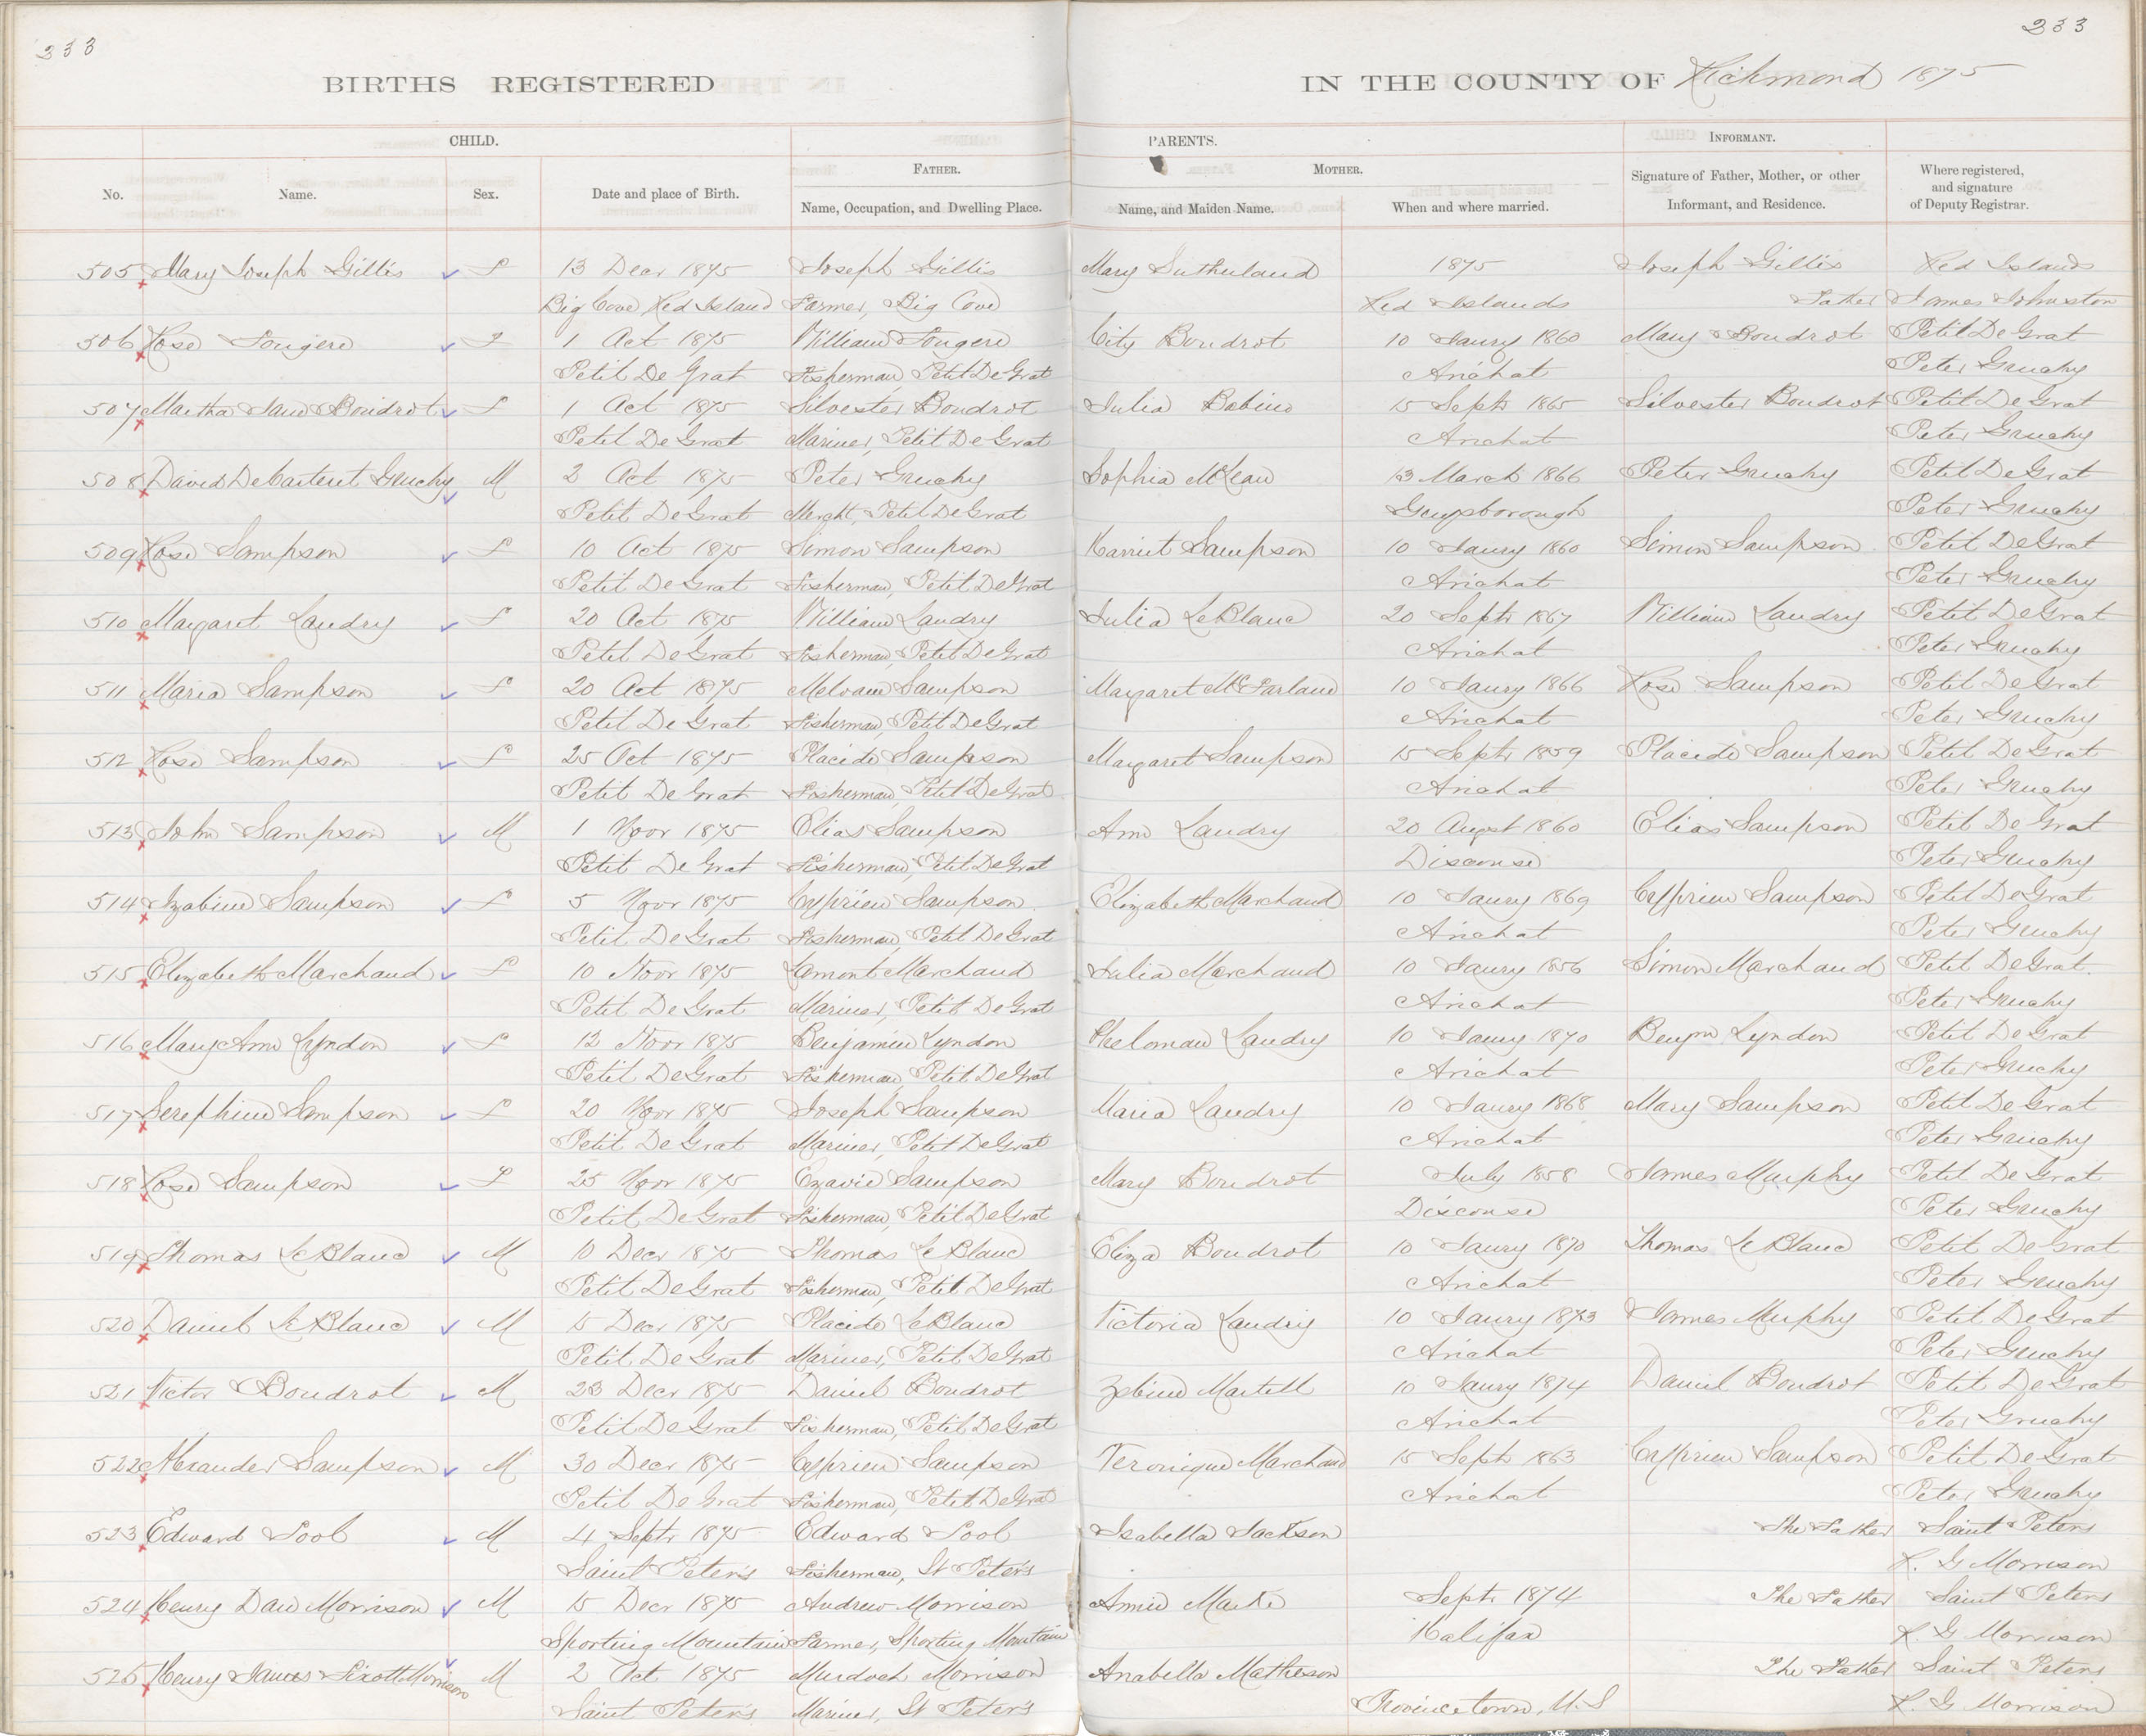 233
233
BIRTHS REGISTERED
IN THE COUNTY OF Richmond 1875
CHILD.
PARENTS.
INFORMANT.
FATHER.
MOTHER.
No.
Name.
Sex.
Date and place of Birth.
Name, Occupation, and Dwelling Place.
Name, and Maiden Name.
When and where married.
Signature of Father, Mother, or other Informant, and Residence.
Where registered, and signature of Deputy Registrar.
505 Mary Joseph Gillis F 13 Decr 1875 Joseph Gillis Mary Sutherland 1875 Joseph Gillis Red Islands
Big Cove, Red Island Farmer, Big Cove Red Islands Father James Johnston
506 Rose Fougere F 1 Oct 1875 William Fougere City Boudrot 10 Jaury 1860 Mary Boudrot Petit De Grat
Petit De Grat Fisherman, Petit De Grat Arichat Peter Gruchy
507 Martha Jane Boudrot F 1 Oct 1875 Silvester Boudrot Julia Babine 15 Septr 1865 Silvester Boudrot Petit De Grat
Petit De Grat Mariner, Petit De Grat Arichat Peter Gruchy
508 David DeCarteret Gruchy M 2 Oct 1875 Peter Gruchy Sophia McLean 13 March 1866 Peter Gruchy Petit De Grat
Petit De Grat Mercht, Petit De Grat Guysborough Peter Gruchy
509 Rose Sampson F 10 Oct 1875 Simon Sampson Harriet Sampson 10 Jaury 1860 Simon Sampson Petit De Grat
Petit De Grat Fisherman, Petit De Grat Arichat Peter Gruchy
510 Margaret Landry F 20 Oct 1875 William Landry Julia LeBlanc 20 Septr 1867 William Landry Petit De Grat
Petit De Grat Fisherman, Petit De Grat Arichat Peter Gruchy
511 Maria Sampson F 20 Oct 1875 Sampson Margaret McFarland 10 Jaury 1866 Rose Sampson Petit De Grat
Petit De Grat Fisherman, Petit De Grat Arichat Peter Gruchy
512 Rose Sampson F 25 Oct 1875 Placide Sampson Margaret Sampson 15 Septr 1859 Placide Sampson Petit De Grat
Petit De Grat Fisherman, Petit De Grat Arichat Peter Gruchy
513 John Sampson M 1 Novr 1875 Elias Sampson Ann Landry 20 Augst 1860 Elias Sampson Petit De Grat
Petit De Grat Fisherman, Petit De Grat Discouse Peter Gruchy
514 Izabine Sampson F 5 Novr 1875 Cyprien Sampson Elizabeth Marchand 10 Jaury 1869 Cyprien Sampson Petit De Grat
Petit De Grat Fisherman, Petit De Grat Arichat Peter Gruchy
515 Elizabeth Marchand F 10 Novr 1875 Lamont Marchand Julia Marchand 10 Jaury 1856 Simon Marchand Petit De Grat.
Petit De Grat Mariner, Petit De Grat Arichat Peter Gruchy
516 Mary Ann Lyndon F 12 Novr 1875 Benjamin Lyndon Pheloman Landry 10 Jaury 1870 Benjn Lyndon Petit De Grat
Petit De Grat Fisherman, Petit De Grat Arichat Peter Gruchy
517 Serephine Sampson F 20 Novr 1875 Joseph Sampson Maria Landry 10 Jaury 1868 Mary Sampson Petit De Grat
Petit De Grat Mariner, Petit De Grat Arichat Peter Gruchy
518 Rose Sampson F 25 Novr 1875 Ezavie Sampson Mary Boudrot July 1858 James Murphy Petit De Grat
Petit De Grat Fisherman, Petit De Grat Discouse Peter Gruchy
519 Thomas LeBlanc M 10 Decr 1875 Thomas LeBlanc Eliza Boudrot 10 Jaury 1870 Thomas LeBlanc Petit De Grat
Petit De Grat Fisherman, Petit De Grat Arichat Peter Gruchy
520 Daniel LeBlanc M 15 Decr 1875 Placide LeBlanc Victoria Landry 10 Jaury 1873 James Murphy Petit De Grat
Petit De Grat Mariner, Petit De Grat Arichat Peter Gruchy
521 Victor Boudrot M 23 Decr 1875 Daniel Boudrot Zebine Martell 10 Jaury 1874 Daniel Boudrot Petit De Grat
Petit De Grat Fisherman, Petit De Grat Arichat Peter Gruchy
522 Alexander Sampson M 30 Decr 1875 Cyprien Sampson Veronique Marchand 15 Septr 1863 Cyprien Sampson Petit De Grat
Petit De Grat Fisherman, Petit De Grat Arichat Peter Gruchy
523 Edward Pool M 4 Septr 1875 Edward Pool Isabella Jackson The Father Saint Peters
Saint Peter's Fisherman, St Peter's R. G Morrison
524 Henry Morrison M 15 Decr 1875 Andrew Morrison Annie Septr 1874 The Father Saint Peters
Sporting Mountain Farmer, Sporting Mountain Halifax R. G Morrison
525 Henry James Morrison M 2 Oct 1875 Murdoch Morrison Anabella Matheson The Father Saint Peters
Saint Peter's Mariner, St Peter's Provincetown, U.S R. G Morrison